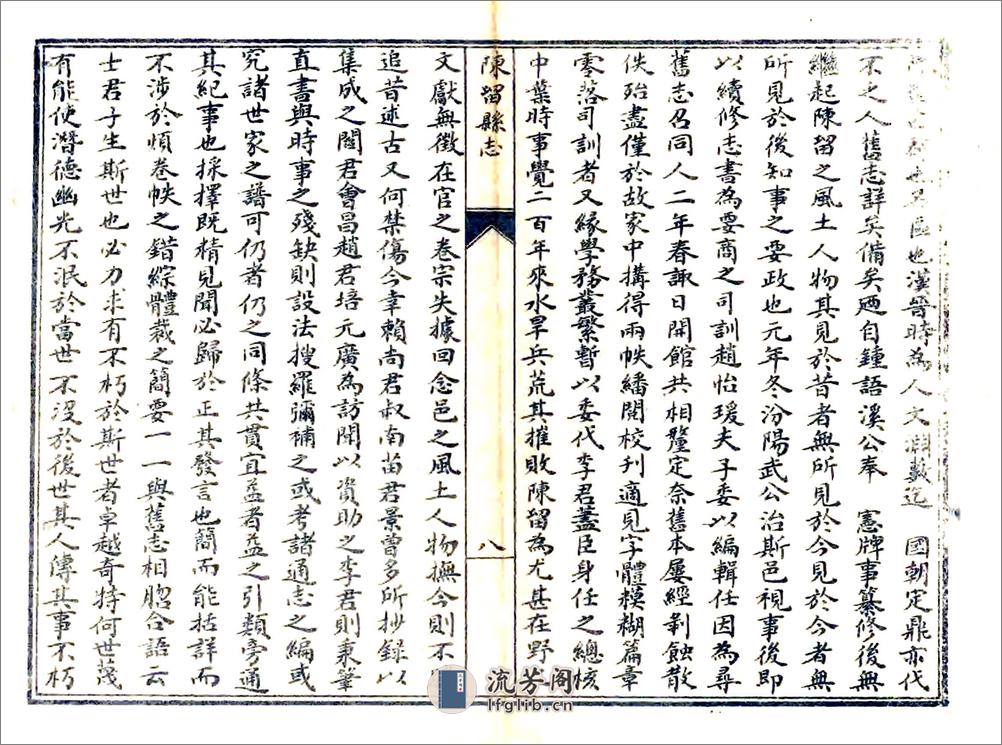 區也漢晉時為人文淵藪迄　國朝定鼎亦代
不乏人舊志詳矣備矣迺自鍾語溪公奉　憲牌事纂修後無
繼起陳留之風土人物其見於昔者無所見於今見於今者無
所見於後知事之要政也元年冬汾陽武公治斯邑視事後即
以續修志書為要商之司訓趙怡瑗夫子委以編輯任因為尋
舊志召同人二年春諏日開館共相釐定奈舊本屢經剝蝕散
佚殆盡僅於故家中搆得兩帙繙閱校刊適見字體糢糊篇章
零落司訓者又緣學務叢繁暫以委代李君藎臣身任之總核
中葉時事覺二百年來水旱兵荒其摧敗陳留為尤甚在野
陳留縣志
八
文獻無徵在官之卷宗失據回念邑之風土人物撫今則不
追昔述古又何禁傷今幸賴尚君叔南苗君景曾多所抄録以
集成之閻君會昌趙君培元廣為訪聞以資助之李君則秉筆
直書與時事之殘缺則設法搜羅彌補之或考諸通志之編或
究諸世家之譜可仍者仍之同條共貫宜益者益之引類旁通
其紀事也採擇既精見聞必歸於正其發言也簡而能括詳而
不涉於煩卷帙之錯綜體裁之簡要一一與舊志相脗合語云
士君子生斯世也必力求有不朽於斯世者卓越奇特何世蔑
有能使潛德幽光不泯於當世不沒於後世其人傳其事不朽
流芳阁
lfglib.cn